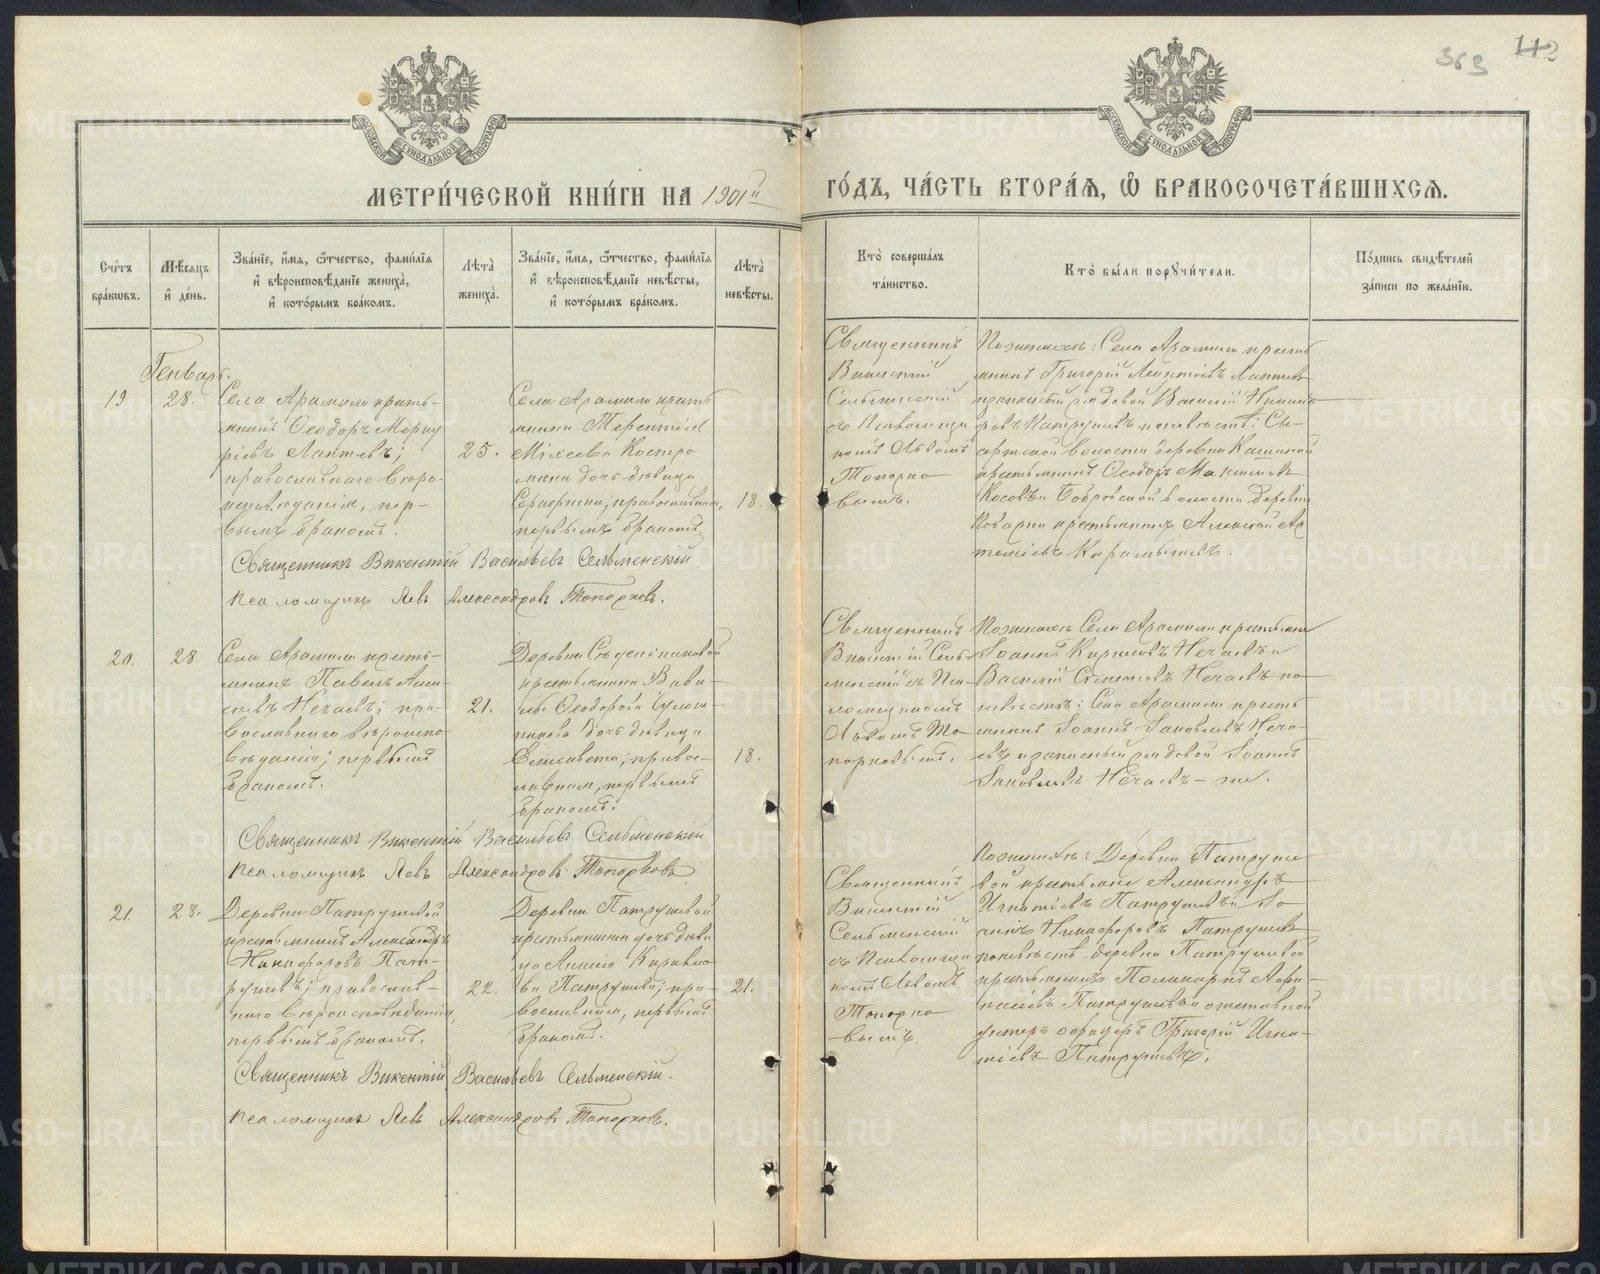 363 112
МОСКОВСКОЙ СѴНОДАЛЬНОЙ ТИПОГРАФІИ
МОСКОВСКОЙ СѴНОДАЛЬНОЙ ТИПОГРАФІИ
МЕТРИ́ЧЕСКОЙ КНИ́ГИ НА 1901й
ГО́ДЪ, ЧА́СТЬ ВТОРА́Ѧ, Ѡ҆ БРАКОСОЧЕТА́ВШИХСѦ.
Сче́тъ
бра́кѡвъ.
Мѣ́сѧцъ
и҆ де́нь.
Зва́нїе, и҆́мѧ, ѻ҆́тчество, фами́лїѧ
и҆ вѣроисповѣ́данїе жениха̀,
и҆ кото́рымъ бра́комъ.
Лѣ́та̀
жениха̀.
Зва́нїе, и҆́мѧ, ѻ҆́тчество, фами́лїѧ
и҆ вѣроисповѣ́данїе невѣ́сты,
и҆ кото́рымъ бра́комъ.
Лѣ́та̀
невѣ́сты.
Кто̀ соверша́лъ
та́инство.
Кто̀ бы́ли порꙋчи́тели.
По́дпись свидѣ́телей
за́писи по жела́нїю.
Генварь.
19
28.
Села Арамили кресть-
янинъ Ѳеодоръ Мерку
ріевъ Лаптевъ;
православнаго вѣро-
исповѣданія, пер-
вымъ бракомъ.
25.
Села Арамили кресть
янина Терентія
Михеева Костро
мина дочь дѣвица
православная,
первымъ бракомъ
18.
Священникъ
Викентій
Сельменскій
съ Псаломщи
комъ Львомъ
Топорко
вымъ.
По женихѣ: Села Арамили кресть
янинъ Григорій Леонтіевъ Лаптевъ
и запасный рядовой Василій
Патрушевъ по невѣстѣ: Сы-
сертской волости деревни
крестьянинъ Ѳеодоръ Максимовъ
Косовъ и Бобровской волости деревни
крестьянинъ Алексѣй Ар
теміевъ
Священникъ Викентій Васильевъ Сельменскій
Псаломщикъ Левъ Александровъ Топорковъ.
20.
28.
Села Арамили кресть-
янинъ Павелъ
Нечаевъ; пра-
вославнаго вѣроиспо-
вѣданія; первымъ
бракомъ.
21.
Деревни
крестьянина Вави-
лы Ѳеодорова
дочь дѣвица
Елисавета; право-
славная, первымъ
бракомъ.
18.
Священникъ
Викентій Сель-
менскій съ Пса-
ломщикомъ
Львомъ То-
порковымъ.
По женихѣ Села Арамили крестьяне
Іоаннъ Кириловъ Нечаевъ и
Василій Нечаевъ по
невѣстѣ: Села Арамили кресть
янинъ Іоаннъ Іаковлевъ Неча-
евъ и запасный рядовой Іоаннъ
Іаковлевъ Нечаевъ-же.
Священникъ Викентій Васильевъ Сельменскій
Псаломщикъ Левъ Александровъ Топорковъ
21.
28.
Деревни Патрушевой
крестьянинъ Александръ
Никифоровъ Пат-
рушевъ; православ-
наго вѣроисповѣданія,
первымъ бракомъ.
22.
Деревни Патрушевой
крестьянина дочь дѣви
ца
Патрушева; пра-
вославная, первымъ
бракомъ.
21.
Священникъ
Викентій
Сельменскій
съ Псаломщи
комъ Львомъ
Топорко
вымъ.
По женихѣ: Деревни Патруше
вой крестьяне Александръ
Игнатіевъ Патрушевъ и Іо
Никифоровъ Патрушевъ
по невѣстѣ деревни Патрушевой
крестьянинъ Поликарпъ
Патрушевъ и отставной
унтеръ офицеръ Григорій Игна-
тіевъ Патрушевъ.
Священникъ Викентій Васильевъ Сельменскій.
Псаломщикъ Левъ Александровъ Топорковъ.
METRIKI.GASO-URAL.RU